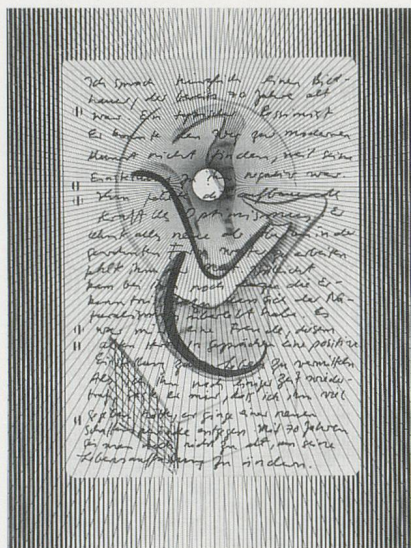 Ich sprach kürzlich einen Bild-
hauer, der bereits 70 Jahre alt
war. Ein typischer Pessimist
Er konnte den Weg zur modernen
Kunst nicht finden, weil seine
Einstellung zu ihr negativ war
Ihm fehlte die aufbauende
Kraft des Optimismus. Er
lehnt alles neue ab
gewohnten
fehlt ihm
kam bei noch die Er-
kenntnis, sich der Na-
turalismus überlebt habe. Es
war mir eine Freude, diesem
alten Herrn in Gesprächen eine positive
Einstellung zum Leben zu vermitteln
Als ich ihn nach einiger Zeit wieder-
traf, sagte er mir, daß ich ihm viel
gegeben hätte, er ginge einer neuen
Schaffensperiode entgegen. Mit 70 Jahren
sei man noch nicht zu alt, um seine
Lebensauffassung zu ändern.